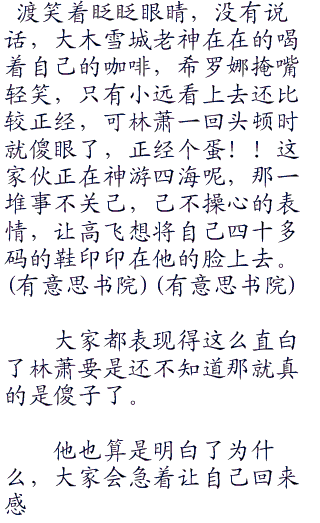 渡笑着眨眨眼睛，没有说
话，大木雪城老神在在的喝
着自己的咖啡，希罗娜掩嘴
轻笑，只有小远看上去还比
较正经，可林萧一回头顿时
就傻眼了，正经个蛋！！这
家伙正在神游四海呢，那一
堆事不关己，己不操心的表
情，让高飞想将自己四十多
码的鞋印印在他的脸上去。
(有意思书院) (有意思书院)
大家都表现得这么直白
了林萧要是还不知道那就真
的是傻子了。
他也算是明白了为什
么，大家会急着让自己回来
感